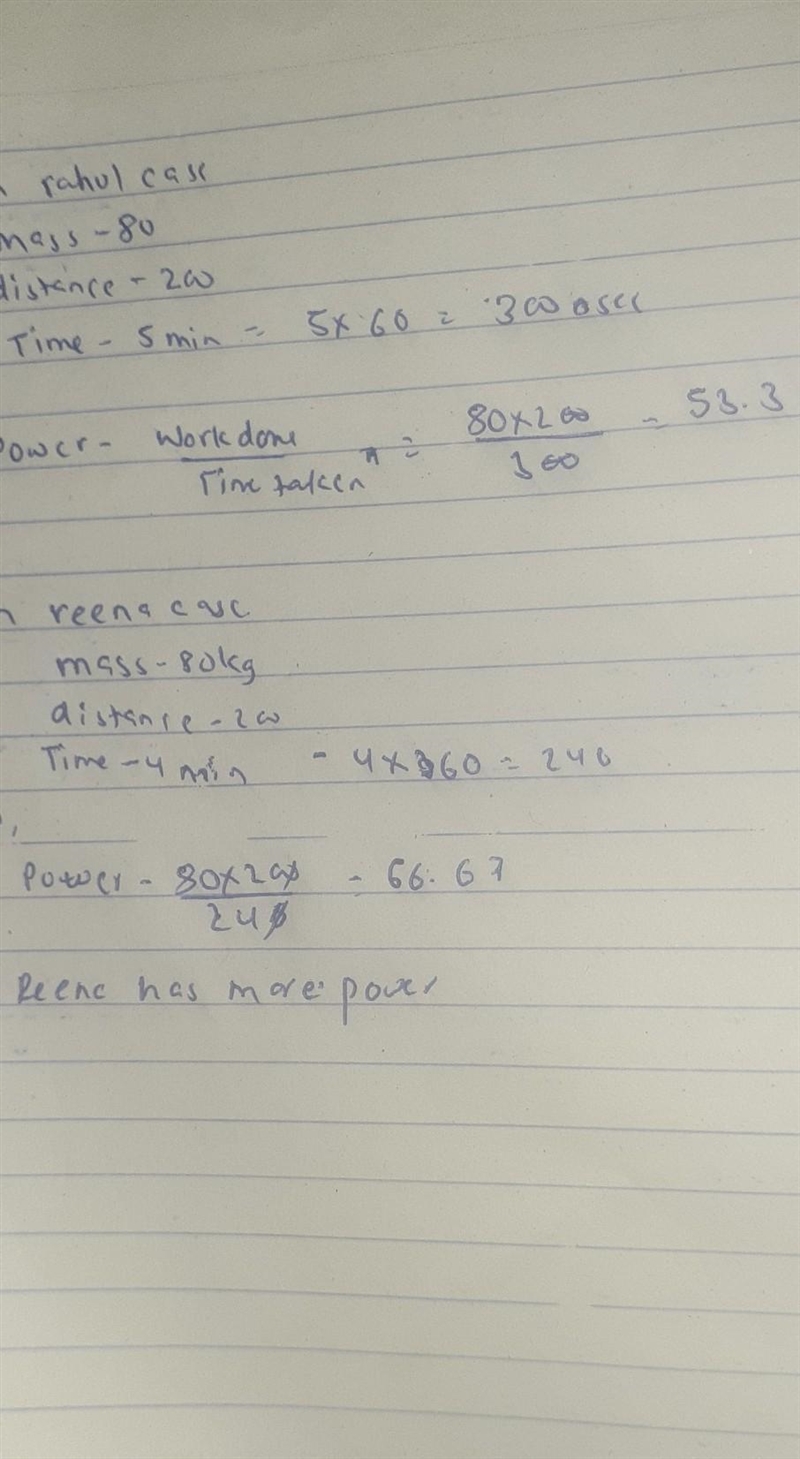 rahul case
mass - 80
distance - 200
Time - 5 min = 5 x 60 = 300 sec
Power - Work done / Time taken = 80 x 200 / 300 - 53.3
reena case
mass - 80kg
distance - 200
Time - 4 min - 4 x 60 = 240
Power - 80 x 200 / 240 - 66.67
Reena has more power